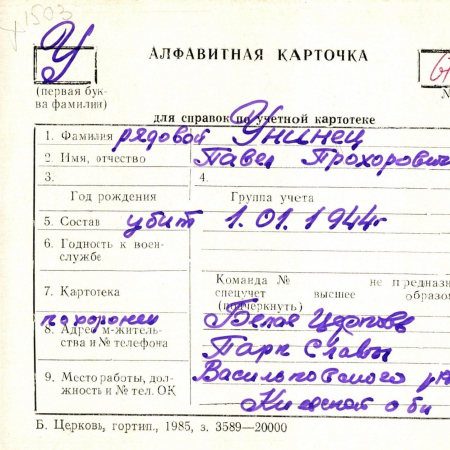 у 1503
У
АЛФАВИТНАЯ КАРТОЧКА
(первая бук-
ва фамилии)
№
для справок по учетной картотеке
1. Фамилия рядовой Унинец
2. Имя, отчество Павел Прохорович
3. 4.
Год рождения Группа учета
5. Состав убит 1.01.1944г
6. Годность к воен-
службе
7. Картотека
Команда № не предназ
спецучет высшее образов
(подчеркнуть)
похоронен Белая Церковь
8. Адрес м-житель-
ства и № телефона Парк Славы
9. Место работы, дол- Васильковского
жность и № тел. ОК Киевской обл
Б. Церковь, гортип., 1985, з. 3589—20000